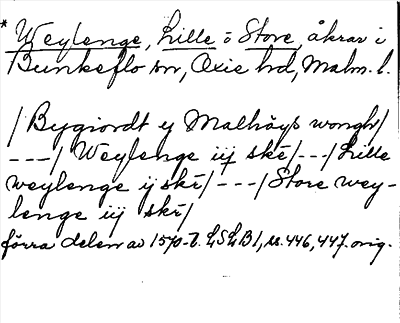 * Weylenge, Lille o Store, åkrar i
Bunkeflo sn, Oxie hd, Malm. l.
/ Bygiordt ej Malhöys wongh/
---/ Weylenge iij skē/---/Lille
weylenge ij skē/ ---/Store wey-
lenge iij skē/
förra delen av 1570-t. LSLB 1, ss. 446, 447. orig.